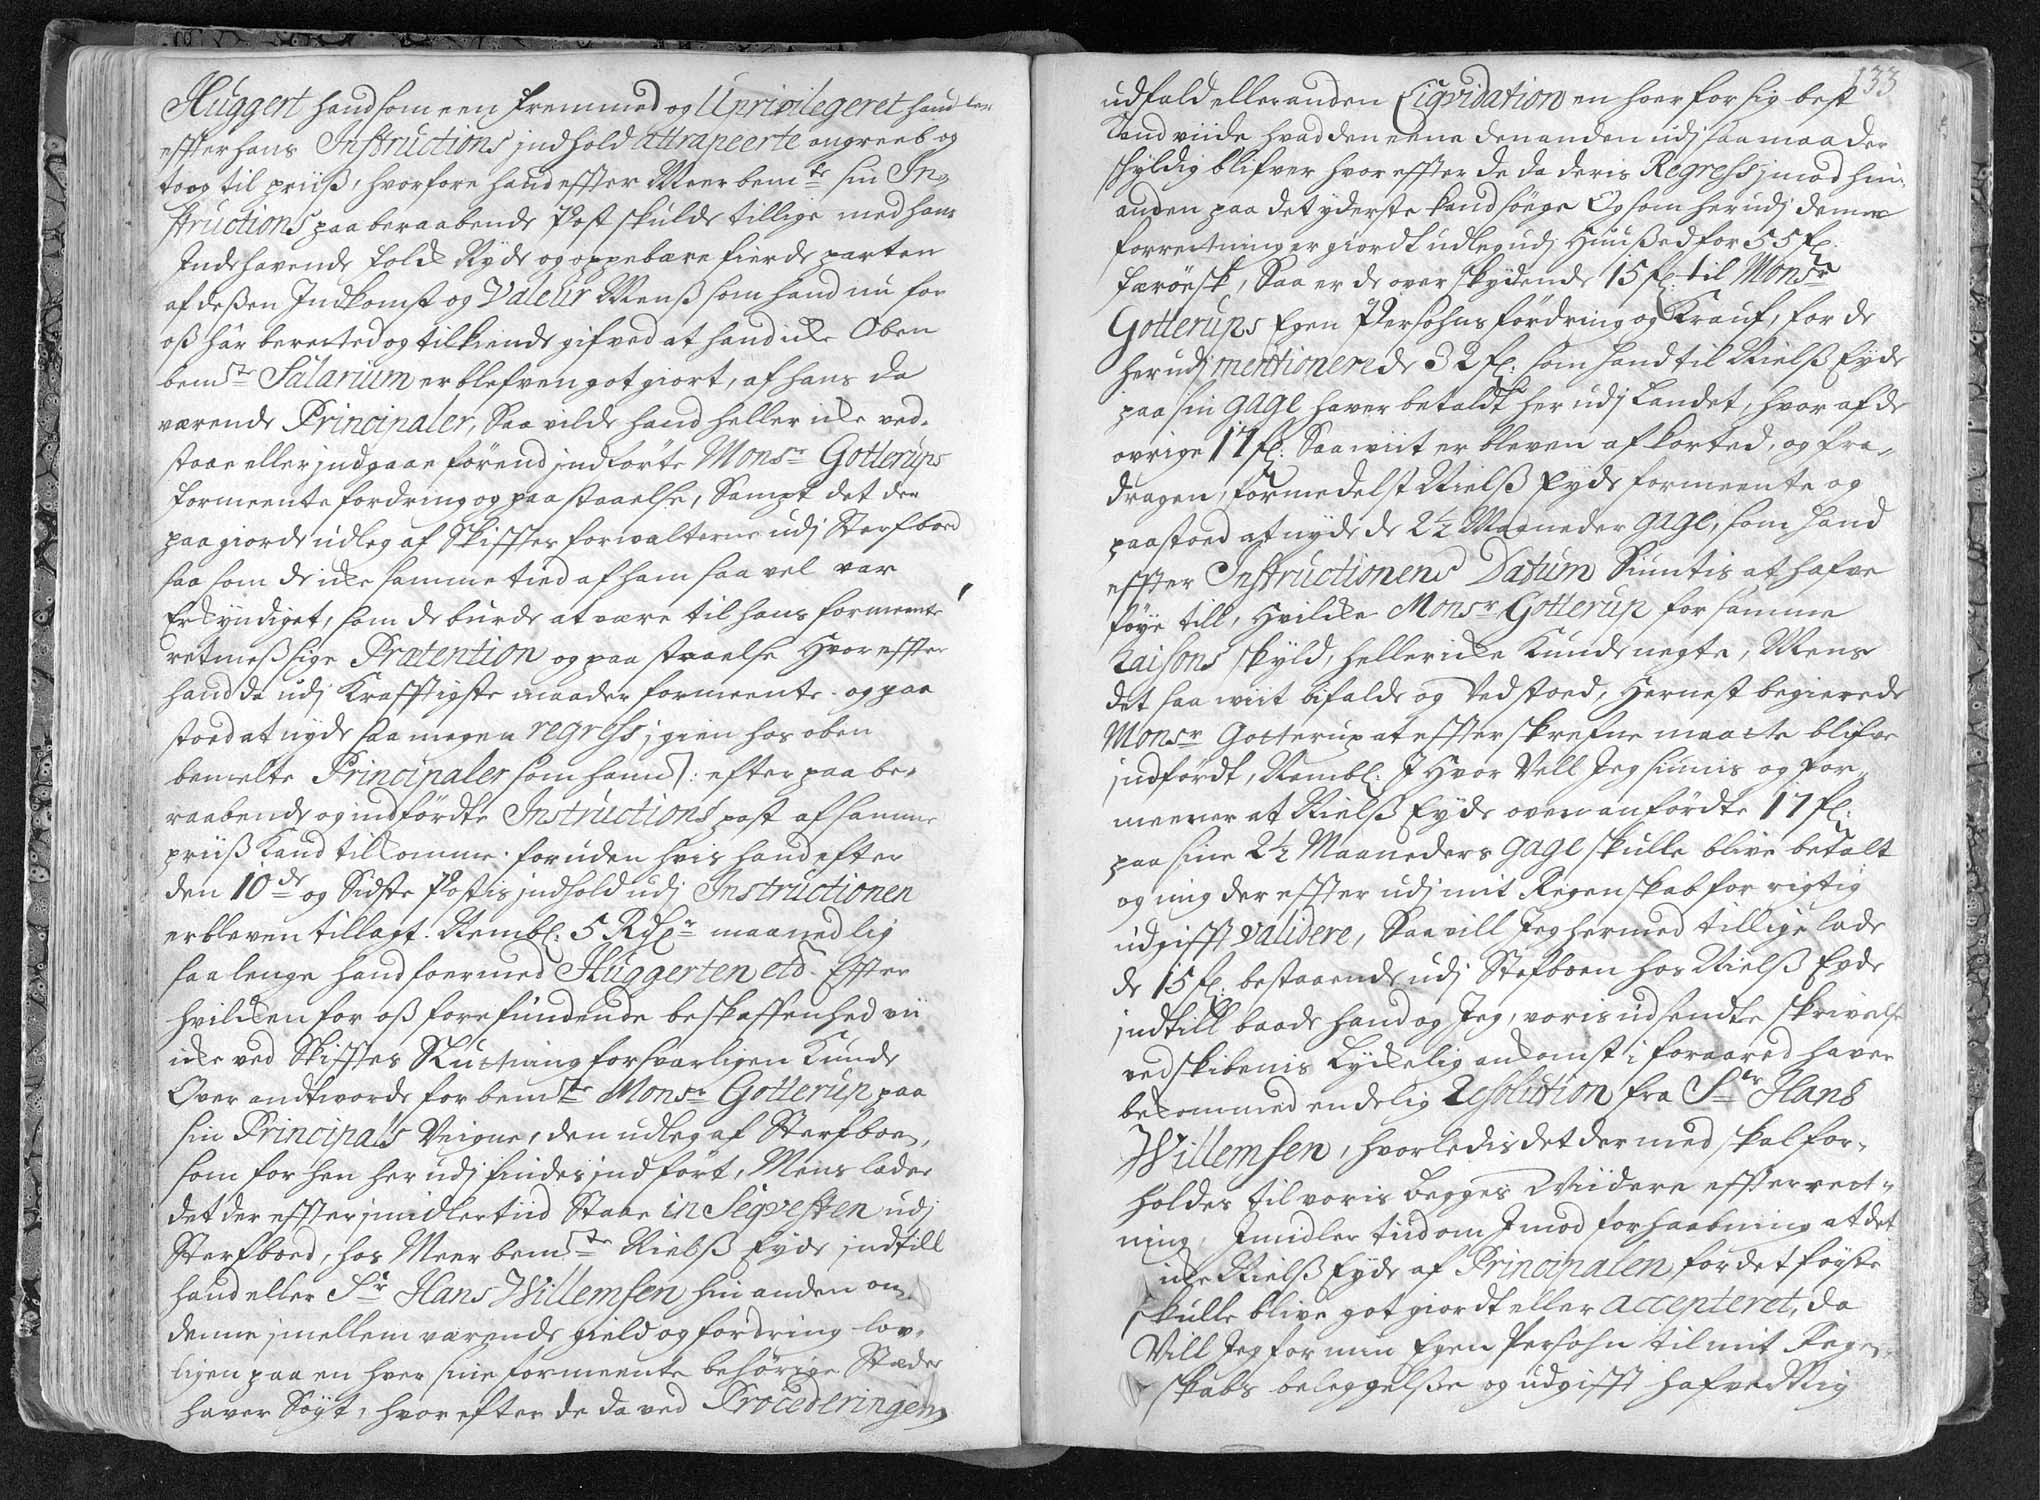 Huggert hand som een fremmed og Uprivilegeret handler
effter hans Instructions jndhold attrapeerte angreeb og
toog til priiß, hvorfore hand effter Meerbemte sin In-
structions paaberaabende Post skulde tillige med hans
Indehavende folck Nyde og oppebære fierde parten
af deßen Indkomst og Valeur Menß som hand nu for
oß har berettet og tilkiende gifved at hand icke Oben
bemte Salarium er blefven got giort, af hans da
værende Principaler, Saa vilde hand heller icke ved-
staae eller jndgaae førend jndførte Monsr Gotterups
formeente fordring og paastaaelse, Sampt det der
paa giorde udleg af Skifftes forvalterne udj Sterfboed
saa som de icke samme tied af ham saa vel var
Erkyndiget, som de burde at være til hans formeente
retmeßsige Prætention og paastaaelse Hvor effter
hand da udj Krafftigste maader formeente og paa
stoed at nyde saa megen regress jgien hos oben
bemelte Principaler som ham /: efter paabe-
raabende og indførdte Instructions post af samme
priiß kand tilkomme foruden hvis hand efter
den 10de og Sidste Postis jndhold udj Instructionen
er bleven tillagt. Nembl. 5 Rdlr maanedlig
saa lenge hand foer med Huggerten etc. Effter
hvilcken for oß forefundende beskaffenhed vii
icke ved Skifftes Slutning forsvarligen kunde
Over andtworde forbemte Monsr Gotterup paa
sin Principals Veigne, den udleg af Sterfboen,
som forhen her udj findes jndført, Mens lader
det der effter jmidlertiid Staae in Seqvesten udj
Sterfboed, hos Meerbemte Nielß Eyde jndtill
hand eller Sr Hans Willemsen hin anden om
denne jmellem værende gield og fordring lov-
ligen paa en hver sine formeente behørige Stæder
haver Søgt, hvor efter de da ved Procederingens
133
udfald eller anden Liqvidation en hver for sig best
kand viide hvad den eene den anden udj saa maader
skyldig blifver hvor effter de da deris Regress jmod hin-
anden paa det yderste kand søege Og som her udj denne
forretning er giordt udleg udj Huußed for 55 fl.
færøesk, Saa er de overskydende 15 fl. til Monsr
Gotterups Egen Persohns fordring og Krauf, for de
her udj mentionerede 32 fl. som hand til Nielß Eyde
paa sin gage haver betaldt her udj Landet, hvor af de
ovrige 17 fl. Saa wiit er bleven afkorted, og fra-
dragen, formedelst Nielß Eyde formeente og
paastoed at nyde de 2½ Maaneder gage, som hand
effter Instructionens Datum Siuntis at hafve
føye till, Hvilcke Monsr Gotterup for samme
Raisons skyld, heller icke kunde negte, Mens
det saa wiit bifalde og Vedstoed, Hernest begierede
Monsr Gotterup at effterskrefne maatte blifve
jndførdt, Nembl: I Hvor Vell Jeg siunis og for-
meener at Nielß Eyde ovenanførdte 17 fl.
paa sine 2½ Maaneders gage skulle blive betalt
og mig der effter udj mit Regenskab for rigtig
udgifft validere, Saa vill Jeg hermed tillige lade
de 15 fl. bestaaende udj Stefboen hos Nielß Eyde
jndtill baade hand og Jeg, voris udsendte skrivelse
ved skibenis Lyckelig ankomst i foraared haver
bekommed endelig Resolution fra Sr Hans
Willemsen, hvorledis det dermed skal for-
holdes til voris begges Wiidere effterret-
ning, Imidler tiid om Imod forhaabning at det
icke Nielß Eyde af Principalen for det første
skulle blive got giordt eller accepteret, da
Vill Jeg for min Egen Persohn til mit Regen-
skabs beleggelße og udgifft hafve Mig